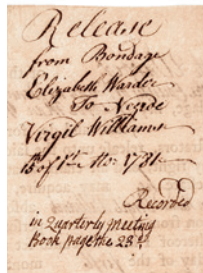 Release
from Bondage
Elizabeth Warder
To Negroe
Virgil Williams
15 of 1st mo: 1781
Recorded
in Quarterly meeting
Book page the 23